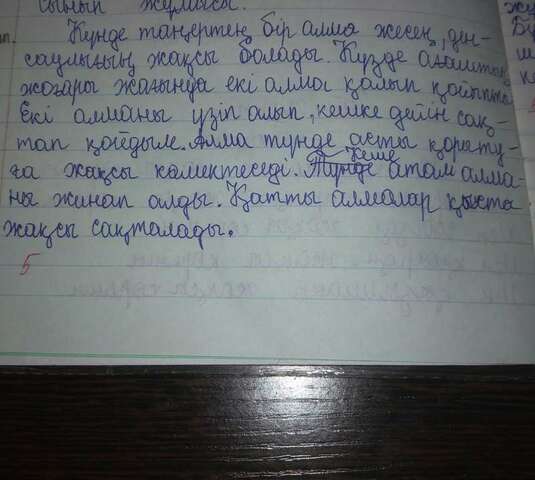 сынып жұмысы.
Күнде таңертең бір алма жесең, ден-
саулығың жақсы болады. Күзде ағаштың
жоғары жағында екі алма қалып қойыпты.
Екі алманы үзіп алып, кешке дейін сақ-
тап қойдым. Алма түнде асты қорыту-
ға жақсы көмектеседі. Түнде Кеше атам алма-
ны жинап алды. Қатты алмалар қыста
жақсы сақталады.
5